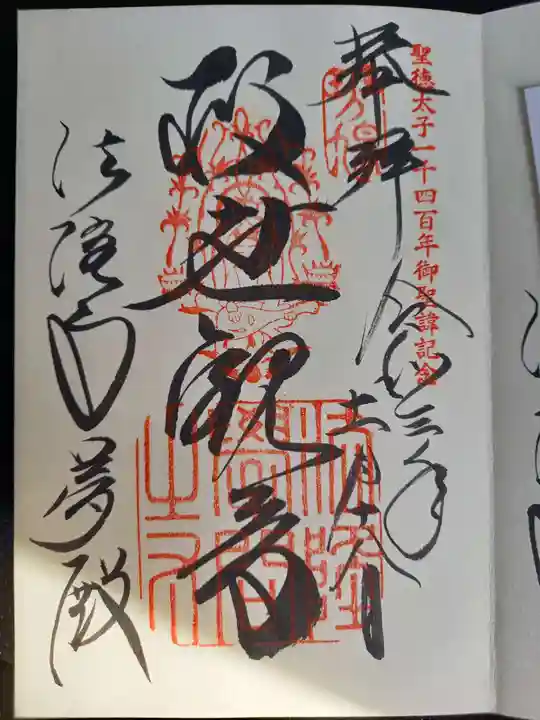 聖徳太子一千四百年御聖諱記念
奉拝
令和三年
十一月十八日
救世観音
法隆寺夢殿